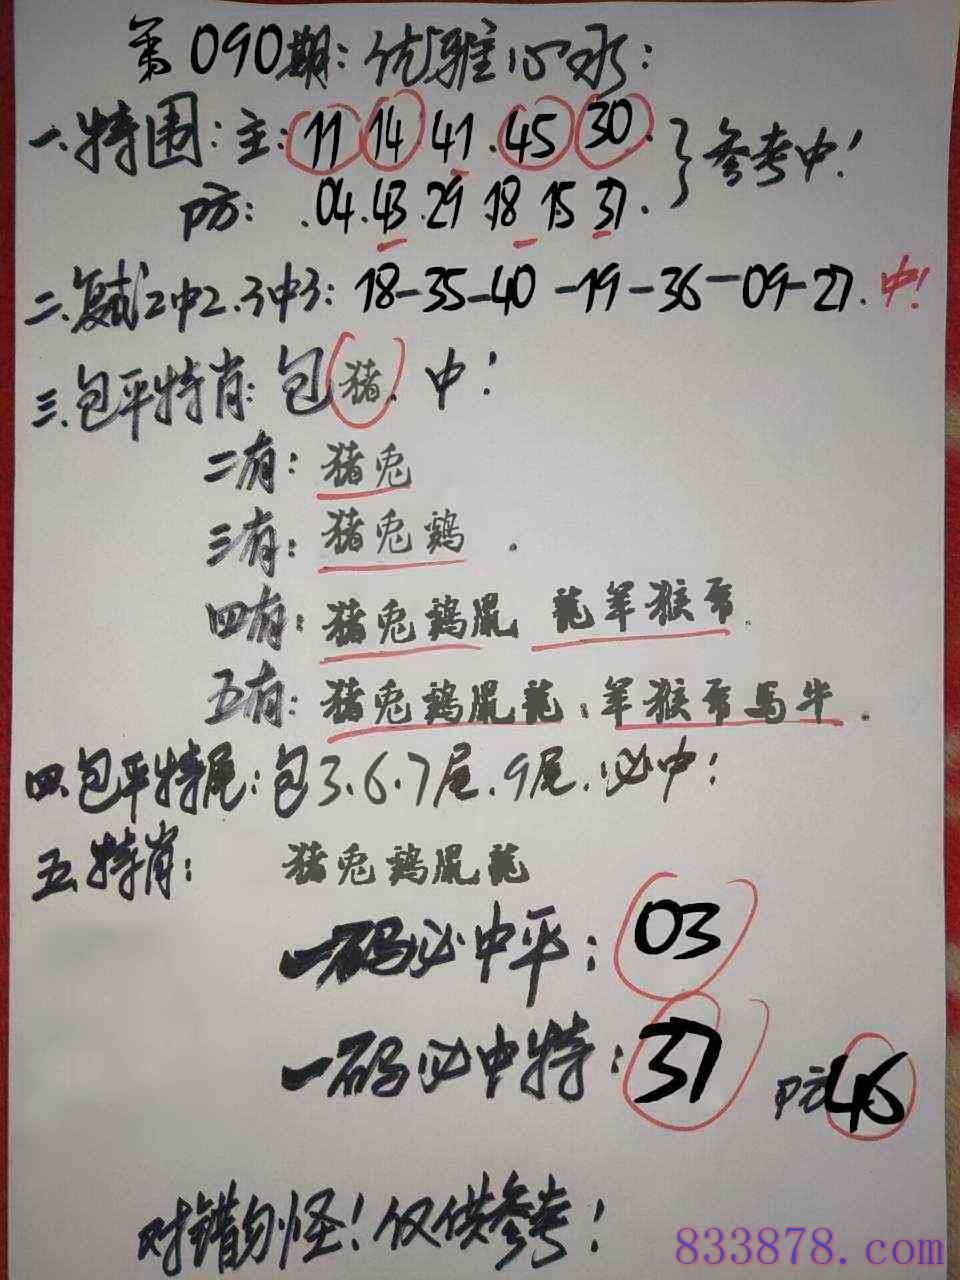 第090期:优雅心水:
一.特围:主:11 14.41.45 30.
防:.04.43.29 18 15 37. }参考中!
二.复试2中2.3中3:18-35-40-19-36-09-27.中!
三.包平特肖:包猪.中!
二有:猪兔
三有:猪兔鷄.
四有:猪兔鷄鼠 龍羊猴
五有:猪兔鷄鼠龍:羊猴 馬牛.
四.包平特尾:包3.6.7尾.9尾.必中!
五.特肖: 猪兔鷄鼠龍
一码必中平:03
一码必中特:37 防46
对错勿怪!仅供参考!
833878.com